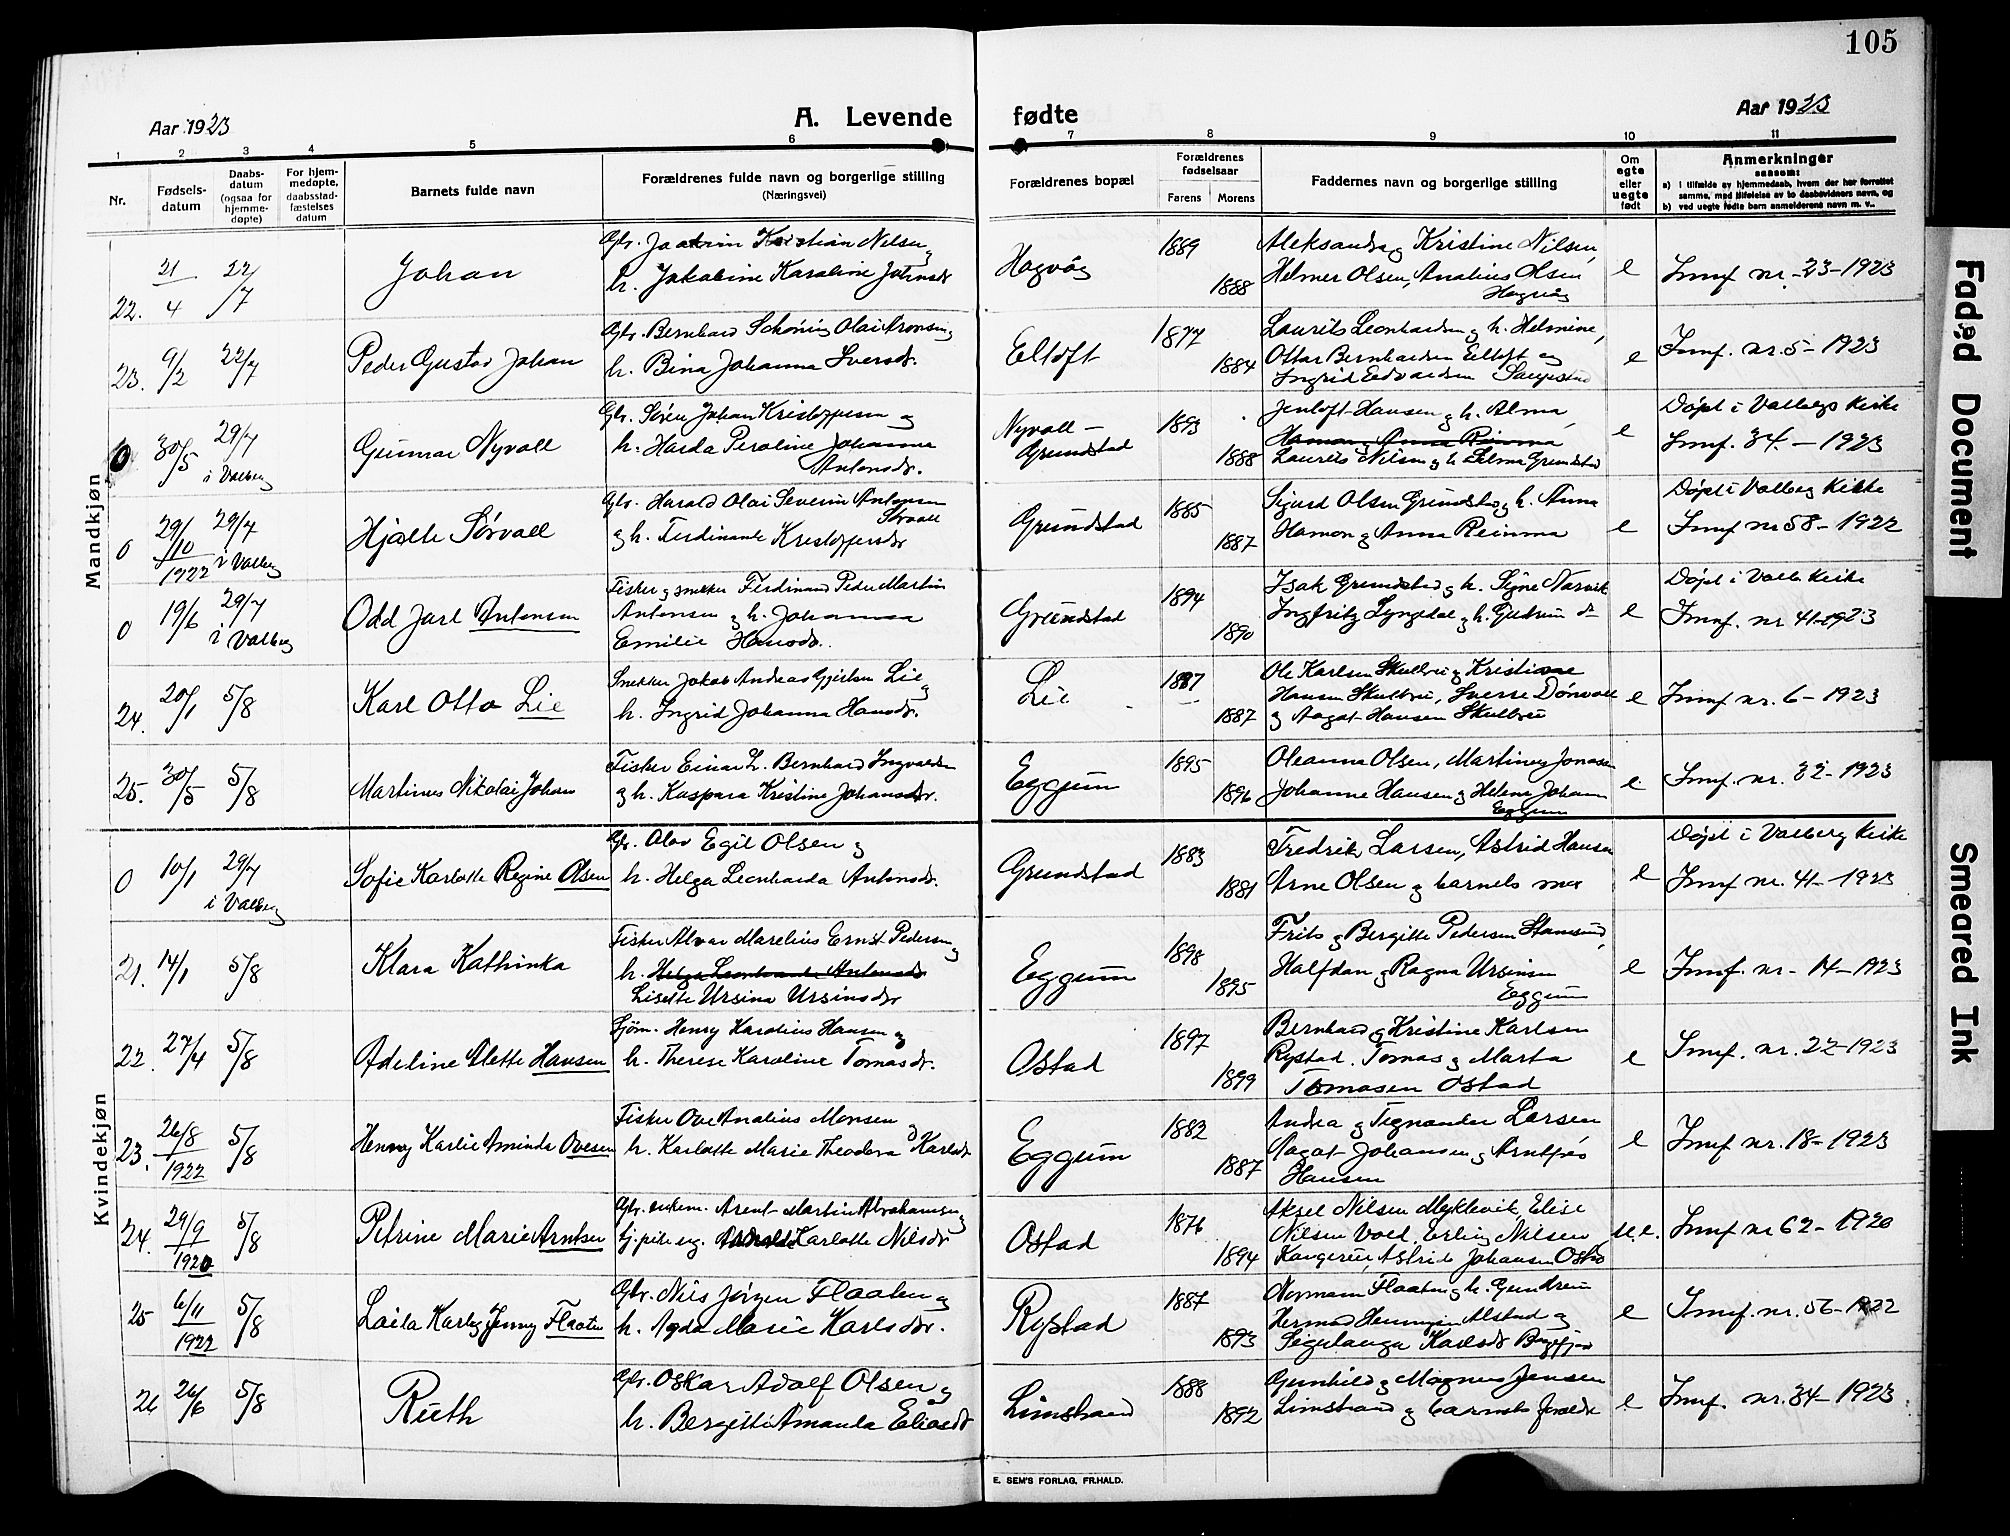 105
Aar 1923
A. Levende fødte
Aar 1923
1 2 3 4 5 6 7 8 9 10 11
Nr.
Fødsels-
datum
Daabs-
datum
(ogsaa for
hjemme-
døpte)
For hjem-
medøpte,
daabsstad-
fæstelses
datum
Barnets fulde navn
Forældrenes fulde navn og borgerlige stilling
(Næringsvei)
Forældrenes bopæl
Forældrenes
fødselsaar
Farens Morens
Faddernes navn og borgerlige stilling
Om
egte
eller
uegte
født
Anmerkninger
saasom:
a) i tilfælde av hjemmedaab, hvem der har forrettet
samme, med tilføielse av to daabsvidners navn, og
b) ved uegte fødte barn anmelderens navn m. v..
Mandkjøn
22. 21/4 22/7
Johan
Gbr. Joakim Kristian Nilsen og
h. Jakobine Karoline Johnsdr
Hagvåg
1889
1888
Aleksander og Kristine Nilsen,
Helmer Olsen, Analius Olsen
Hagvåg
e
Innf nr. 23-1923
23. 9/2 22/7
Peder Gustav Johan
Gbr. Bernhard Schøning Olai Aronsen og
h. Bina Johanna Iversdr.
Eltoft
1877
1884
Laurits Leonhardsen og h. Helmine,
Ottar Bernhardsen Eltoft og
Ingrid Edvardsen
e
Innf. nr. 5-1923
0 30/5 29/7
i Valberg
Gunnar Nyvoll
Gbr. Søren Johan Kristoffersen og
h. Harda Peroline Johanna
Antonsdr.
Nyvoll -
Grundstad
1893
1888
Jentoft Hansen og h. Alma,
Hamon og Anna Reinma
Laurits Nilsen og h. Selma Grundstad
e
Døpt i Valbergs Kirke
Innf. 34 - 1923
0 29/10 1922 29/7
i Valberg
Hjalte Sørvoll
Gbr. Harald Olai Severin Antonsen
Sørvoll
og h. Ferdinande Kristoffersdr
Grundstad
1885
1887
Sigurd Olsen Grundstad og h. Anna
Hamon og Anna Reinma
e
Døpt i Valberg Kirke
Innf nr 58-1922
0 19/6 29/7
i Valberg
Odd Jarl Antonsen
Fisker og snekker Ferdinand Peder Martin
Antonsen og h. Johanna
Emilie Hansdr.
Grundstad
1894
1890
Isak Grundstad og h. Signe Narvik
Ingfrits Lyngedal og h. Gudrun do
e
Døpt i Valb. Kirke
Innf. nr 41-1923
24. 20/1 5/8
Karl Otto Lie
Snekker Jakob Andreas Gjertsen Lie og
h. Ingrid Johanna Hansdr.
Lie
1887
1887
Ole Karlsen Skulbru og Kristiane
Hansen Skulbru, Sverre Dønvoll
og Aagot Hansen Skulbru
e
Innf nr. 6-1923
25. 30/5 5/8
Martines Nikolai Johan
Fisker Einar H. Bernhard Ingvaldsen
og h. Kaspara Kristine Johansdr.
Eggum
1895
1896
Oleanna Olsen, Martines Jonassen
Johanne Hansen og Helene Johansen
Eggum
e
Innf. nr. 32-1923
Kvindekjøn
0 10/1 29/7
i Valberg
Sofie Karlotte Regine Olsen
Gbr. Olav Egil Olsen og
h. Helga Leonharda Antonsdr.
Grundstad
1883
1881
Fredrik Larsen, Astrid Hansen
Arne Olsen og barnets mor
e
Døpt i Valberg Kirke
Innf nr. 41-1923
21. 14/1 5/8
Klara Kathinka
Fisker Alvar Marelius Ernst Pedersen og
h. Helga Leonharda Antonsdr
Liselte Ursina Ursinsdr
Eggum
1898
1895
Frits og Bergitte Pedersen Stamsund,
Halfdan og Ragna Ursinsen
Eggum
e
Innf. nr - 14-1923
22. 27/4 5/8
Adeline Alette Hansen
Sjøm. Henry Karolius Hansen og
h. Therese Karoline Tomasdr.
Ostad
1897
1899
Bernhard og Kristine Karlsen
Rystad. Tomas og Marta
Tomasen Ostad
e
Innf. nr. 22-1923
23. 26/8 1922 5/8
Henny Karlie Aminda Ovesen
Fisker Ove Analius Monsen og
h. Karlotte Marie Theodora Karlsdr
Eggum
1882
1887
Andrea og Tegnander Larsen,
Aagot Johansen og Arntfrös
Hansen
e
Innf nr. 18-1923
24. 29/9 1920 5/8
Petrine Marie Arntsen
Gbr. enkem. Arent Martin Abrahamsen og
tj. pike ug. Karlotte Nilsdr
Ostad
1876
1894
Aksel Nilsen Myklevik, Elise
Nilsen Vold, Erling Nilsen
Kangerur, Astrid Johansen Ostad
u.e.
Innf nr 62-1920
25 6/11 1922 5/8
Laila Karly Jenny Flaaten
Gbr. Nils Jørgen Flaaten og
h. Agda Marie Karlsdr.
Rystad
1887
1893
Normann Flaaten og h. Gundrun
Herman Henningsen Alstad og
Karlsdr
e
Innf. nr. 56-1922
26 26/6 5/8
Ruth
Gbr. Oskar Adolf Olsen og
h. Bergitte Amanda Eliasdr
Limstrand
1888
1892
Gunhild og Magnus Jensen
Limstrand og barnets foreldre
e
Innf. nr. 34-1923
E. SEM'S FORLAG, FR.HALD.
Faded Document
Smeared Ink